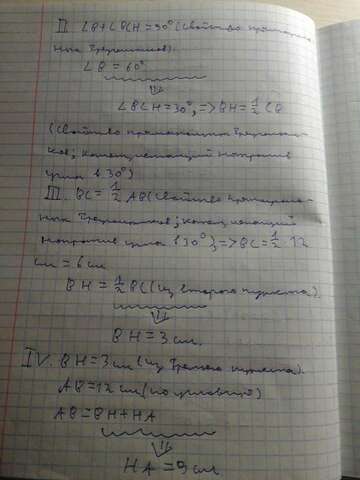 II. ∠B+∠BCH=90° (свойство прямоуголь-
ных треугольников).
∠B=60°
⇓
∠BCH=30°,=>BH=½CB
(свойство прямоугольных треугольни-
ков; катет, лежащий напротив
угла в 30°)
III. BC=½AB (свойство прямоуголь-
ных треугольников; катет, лежащий
напротив угла в 30°),=>BC=½·12
см=6см
BH=½BC (из второго пункта).
⇓
BH=3см.
IV. BH=3см (из третьего пункта).
AB=12см (по условию)
AB=BH+HA
⇓
HA=9см